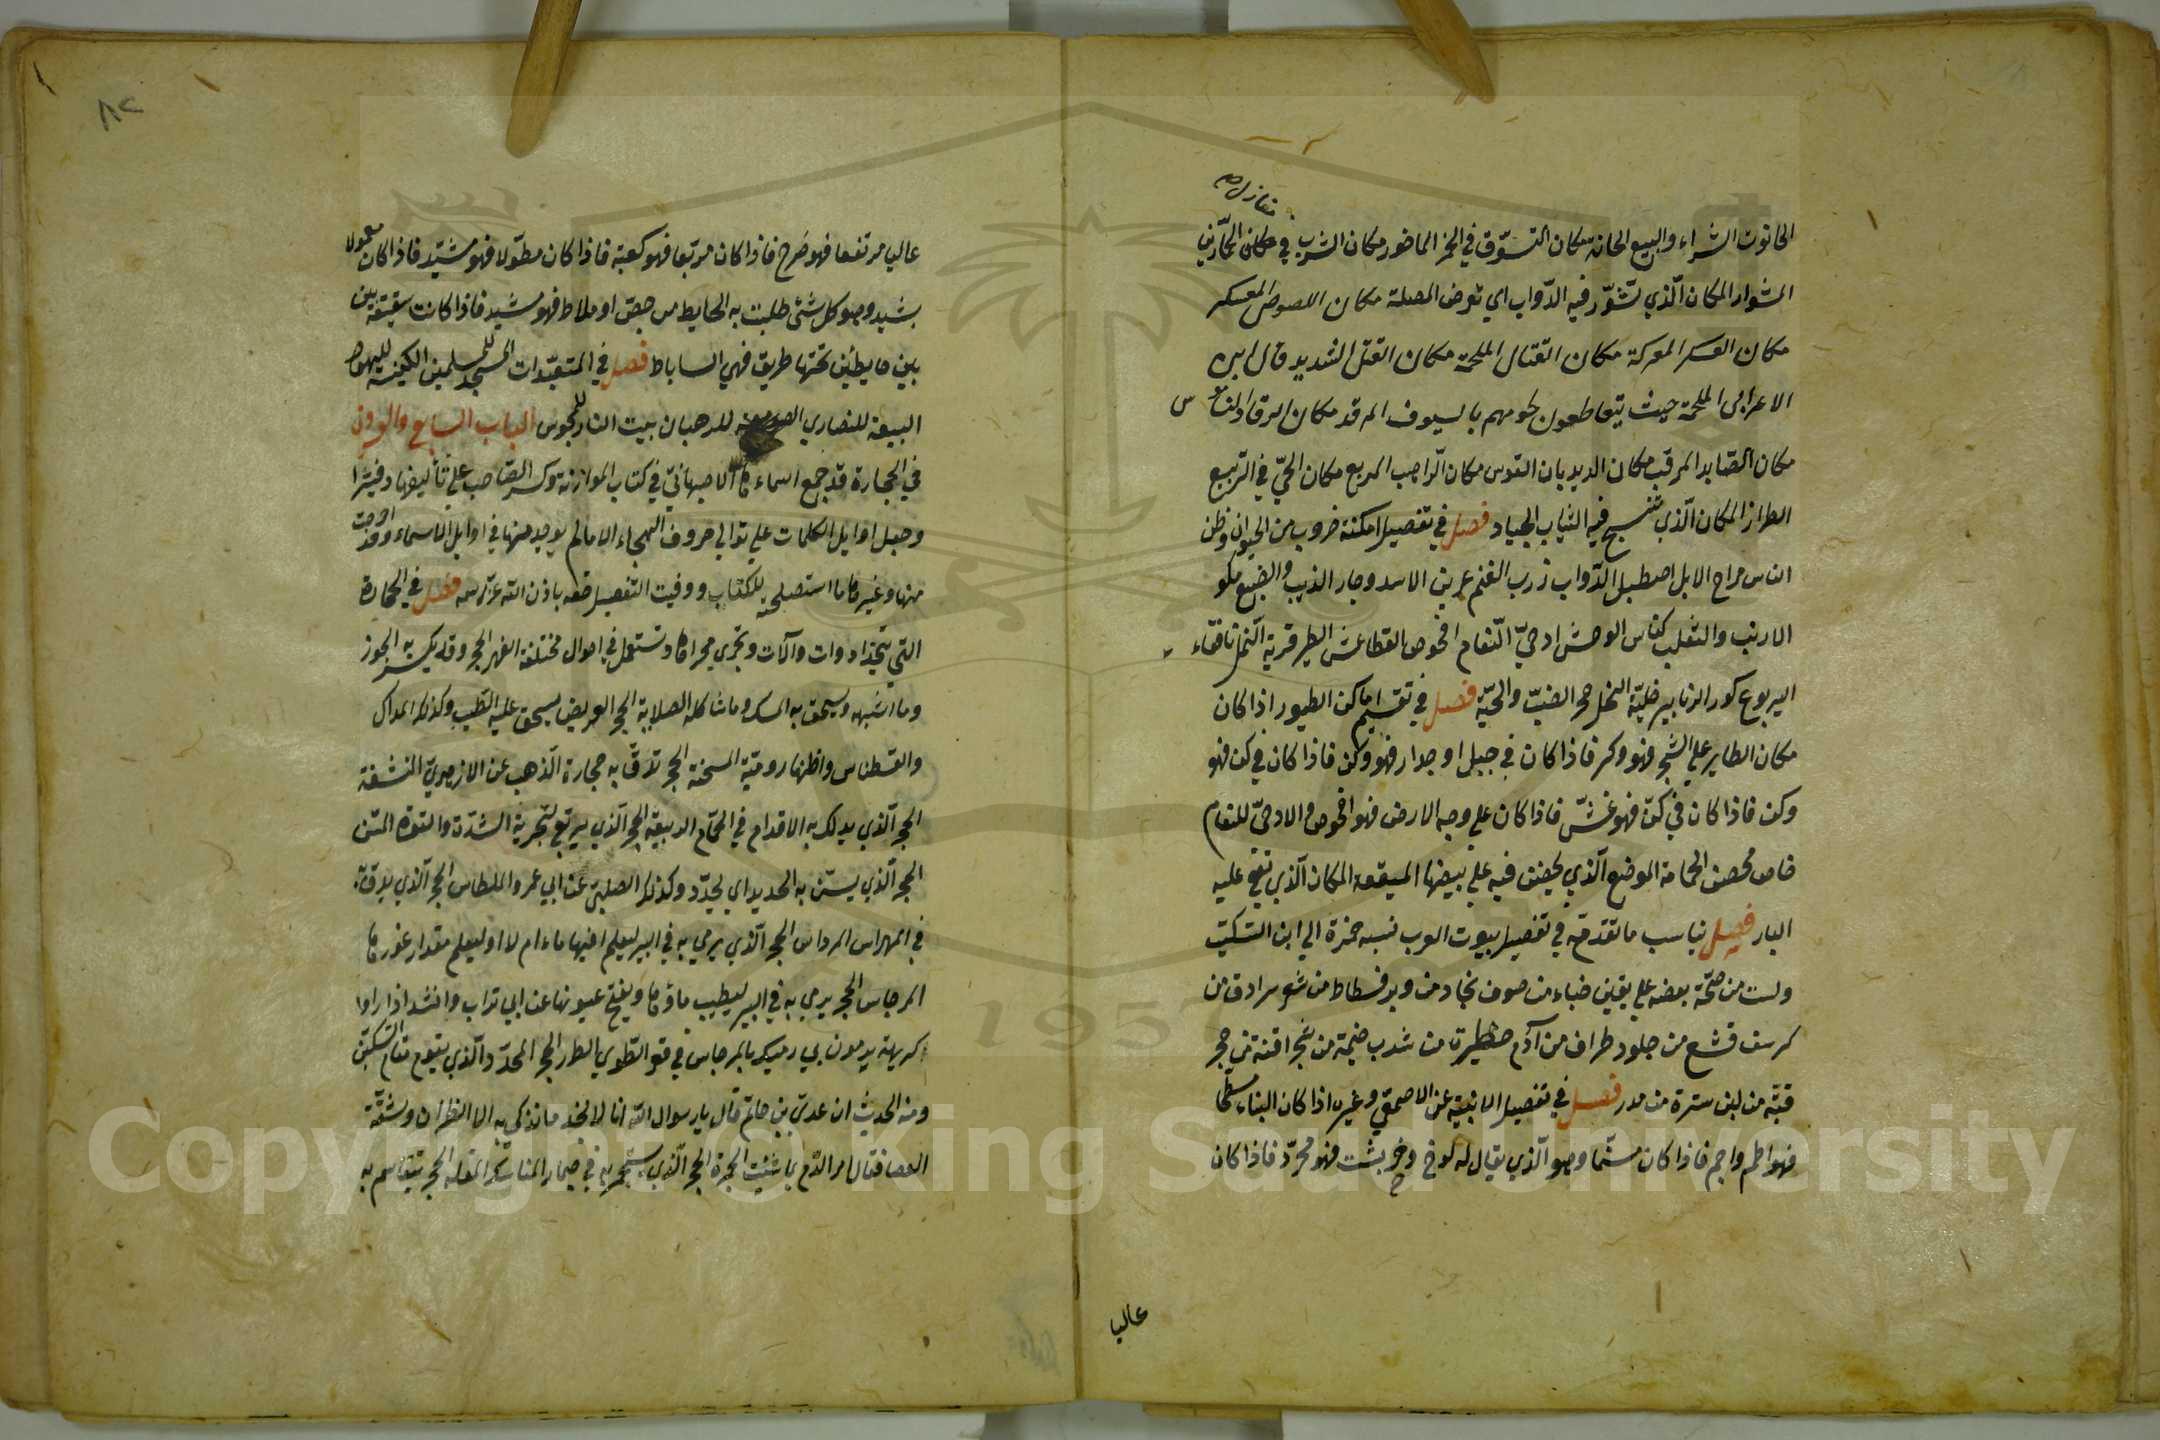 منازل صح
الحانوت الشراء والبيع الحانة مكان التسوق في الخمر الماخور مكان الشرب في منازل الخمارين
المشوار المكان الذي تشور فيه الدواب اي تعرض المصلة مكان اللصوص المعسكر
مكان العسكر المعركة مكان القتال الملحمة مكان القتل الشديد قال ابن
الاعرابى الملحمة حيث يتقاطعون لحومهم بالسيوف المرقد مكان الرقاد الناموس
مكان الصايد المرقب مكان الديدبان القوس مكان الراهب المربع مكان الحي في الربيع
الطراز المكان الذي تنسج فيه الثياب الجياد فصل في تفصيل امكنة ضروب من الحيوان وطن
الناس مراح الابل اصطبل الدواب زرب الغنم عرين الاسد وجار الذيب والضبع مكو
الارنب والثعلب كناس الوحش ادحي النعام افحوص القطا عش الطير قرية النمل نافقاء
اليربوع كور الزنابير خلية النحل جحر الضب والحية فصل في تقسيم اماكن الطيور اذا كان
مكان الطاير علي الشجر فهو وكر فاذا كان في جبل او جدار فهو وكن فاذا كان في كن فهو
وكن فاذا كان في كن فهو عش فاذا كان علي وجه الارض فهو افحوص والادحي للنعام
خاص محضن الحمامة الموضع الذي تحضن فيه علي بيضها الميقعة المكان الذي تقع عليه
الباز فصل يناسب ما تقدمه في تفصيل بيوت العرب نسبه حمزة الي ابن السكيت
ولست من صحة بعضه علي يقين خباء من صوف بجاد من وبر فسطاط من شعر سرادق من
كرسف قشع من جلود طراف من آدم حظيرة من شذب خيمة من شجر اقنة من حجر
قبة من لبن سترة من مدر فصل في تفصيل الابنية عن الاصمعي وغيره اذا كان البناء مسطحا
فهو اطم واجم فاذا كان مسنما وهو الذي يقال له كوخ وخربشت فهو محرد فاذا كان
عاليا
٨٢
عاليا مرتفعا فهو صرح فاذا كان مربعا فهو كعبة فاذا كان مطولا فهو مشيد فاذا كان معمولا
بشيد وهو كل شئ طليت به الحايط من جص او ملاط فهو مشيد فاذا كانت سقيفة بين
بين حايطين تحتها طريق فهي الساباط فصل في المتعبدات المسجد للمسلمين الكنيسة لليهود
البيعة للنصاري الصومعة للرهبان بيت النار للمجوس الباب السابع والعشرون
في الحجارة قد جمع اسماءها الاصبهاني في كتاب الموازنة وكسر الصاحب علي تأليفها دفيترا
وجعل اوايل الكلمات علي توالي حروف الهجاء الا مالم يوجد منها في اوايل الاسماء وقد اخرجت
منها وغيرها ما استصلحته للكتاب ووفيت التفصيل حقه باذن الله عز اسمه فصل في الحجارة
التي تتخذ ادوات وآلات وتجري مجراها وتستعمل في احوال مختلفة الفهر الحجر وقد يكسر به الجوز
وما اشبهه ويسحق به المسك وما شاكله الصلاية الحجر العريض يسحق عليه الطيب وكذلك المداك
والقسطناس واظنها رومية المسحنة الحجر تدق به حجارة الذهب عن الازهري النشفة
الحجر الذي يدلك به الاقدام في الحمام الربيعة الحجر الذي يرتبع لتجربة الشدة والقوة المسن
الحجر الذي يسن به الحديد اي يحدد وكذلك الصلبي عن ابي عمرو الملطاس الحجر الذي يدق به
في المهراس المرداس الحجر الذي يرمي به في البير ليعلم افيها ماء ام لا او ليعلم مقدار غورها
المرجاس الحجر يرمي به في البير ليطيب ماؤها ويفتح عيونها عن ابي تراب وانشد اذا راوا
كريهة يرمون بي رميك بالمرجاس في قعر الطوي الظرر الحجر المحدد الذي يقوم مقام السكين
ومنه الحديث ان عدي بن حاتم قال يا رسول الله انا لا نجد ما نذكي به الا الظران وشقة
العصا فقال امر الدم بما شئت الجمرة الحجر الذي يستجمر به في جمار المناسك المقلة الحجر يتقاسم به